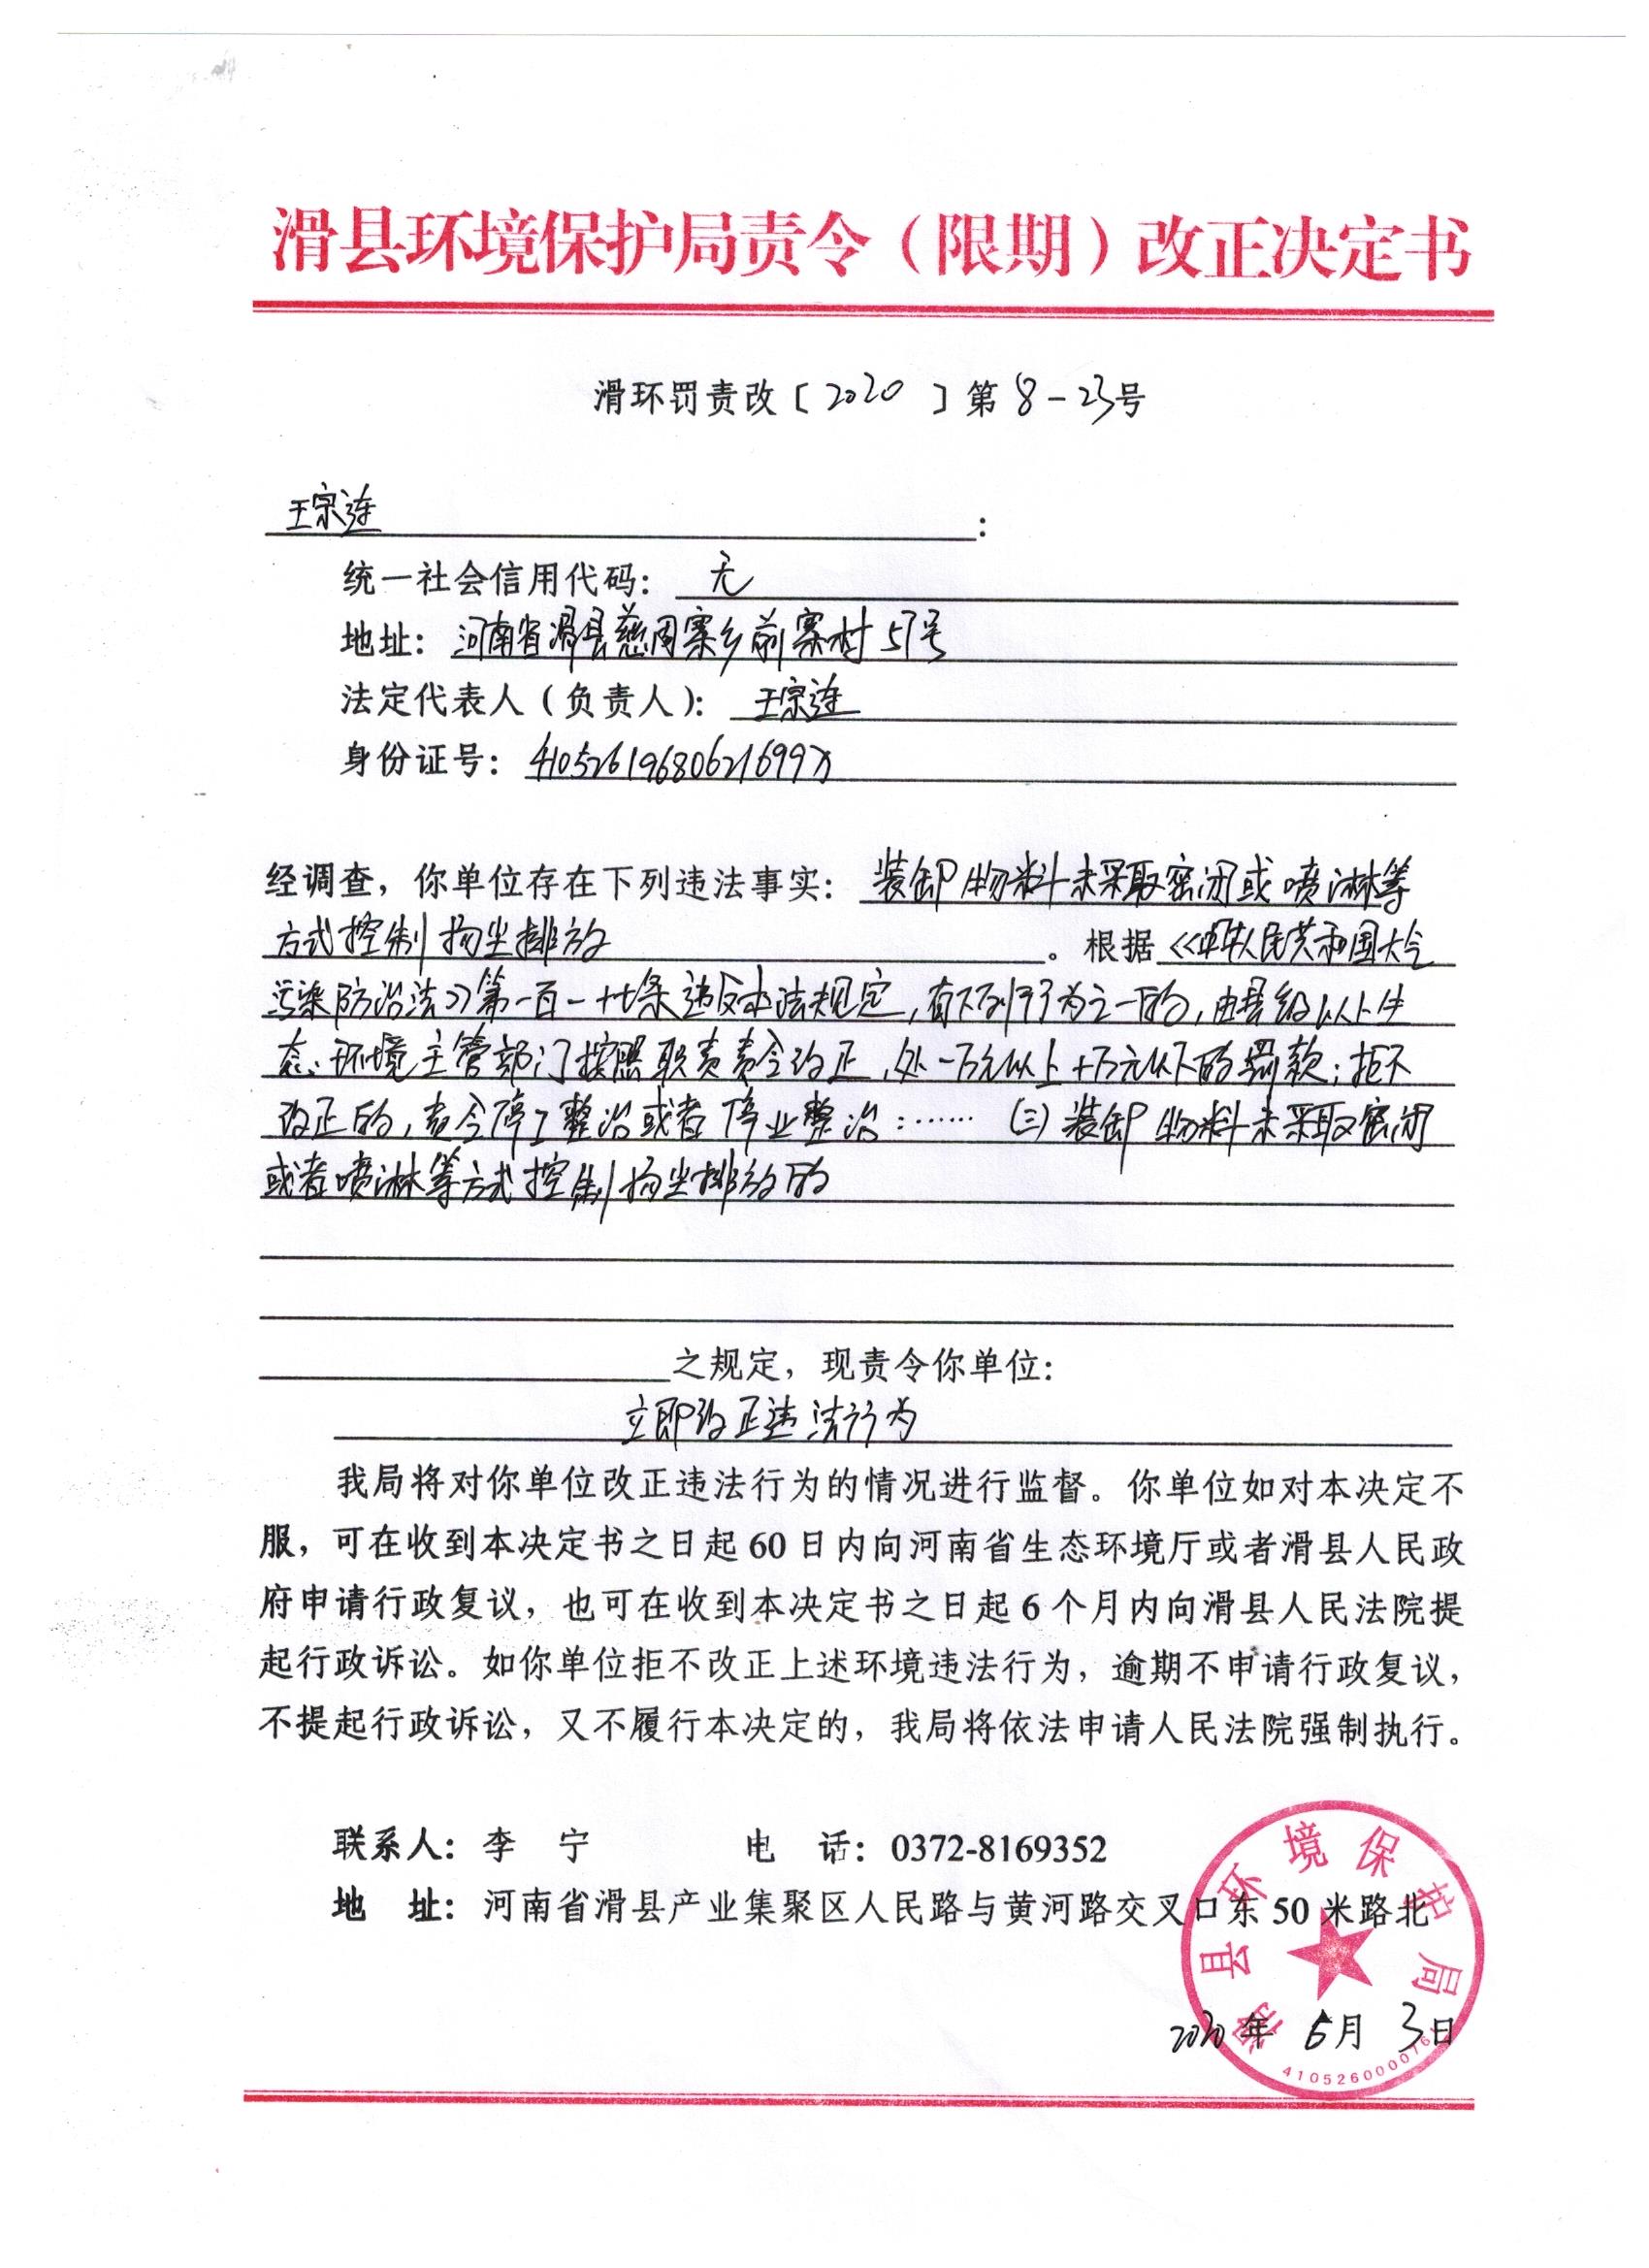 滑县环境保护局责令（限期）改正决定书
滑环罚责改〔2020〕第8-23号
王宗连：
统一社会信用代码：无
地址：河南省滑县慈周寨乡前寨村57号
法定代表人（负责人）：王宗连
身份证号：41052619680621699X
经调查，你单位存在下列违法事实：装卸物料未采取密闭或喷淋等
方式控制扬尘排放。根据《中华人民共和国大气
污染防治法》第一百一十七条违反本法规定，有下列行为之一的，由县级以上生
态环境主管部门按照职责责令改正，处一万元以上十万元以下的罚款；拒不
改正的，责令停工整治或者停业整治：……（三）装卸物料未采取密闭
或者喷淋等方式控制扬尘排放的
之规定，现责令你单位：
立即改正违法行为
我局将对你单位改正违法行为的情况进行监督。你单位如对本决定不
服，可在收到本决定书之日起60日内向河南省生态环境厅或者滑县人民政
府申请行政复议，也可在收到本决定书之日起6个月内向滑县人民法院提
起行政诉讼。如你单位拒不改正上述环境违法行为，逾期不申请行政复议，
不提起行政诉讼，又不履行本决定的，我局将依法申请人民法院强制执行。
联系人：李 宁 电 话：0372-8169352
地 址：河南省滑县产业集聚区人民路与黄河路交叉口东50米路北
滑县环境保护局
2020年 6月 3日